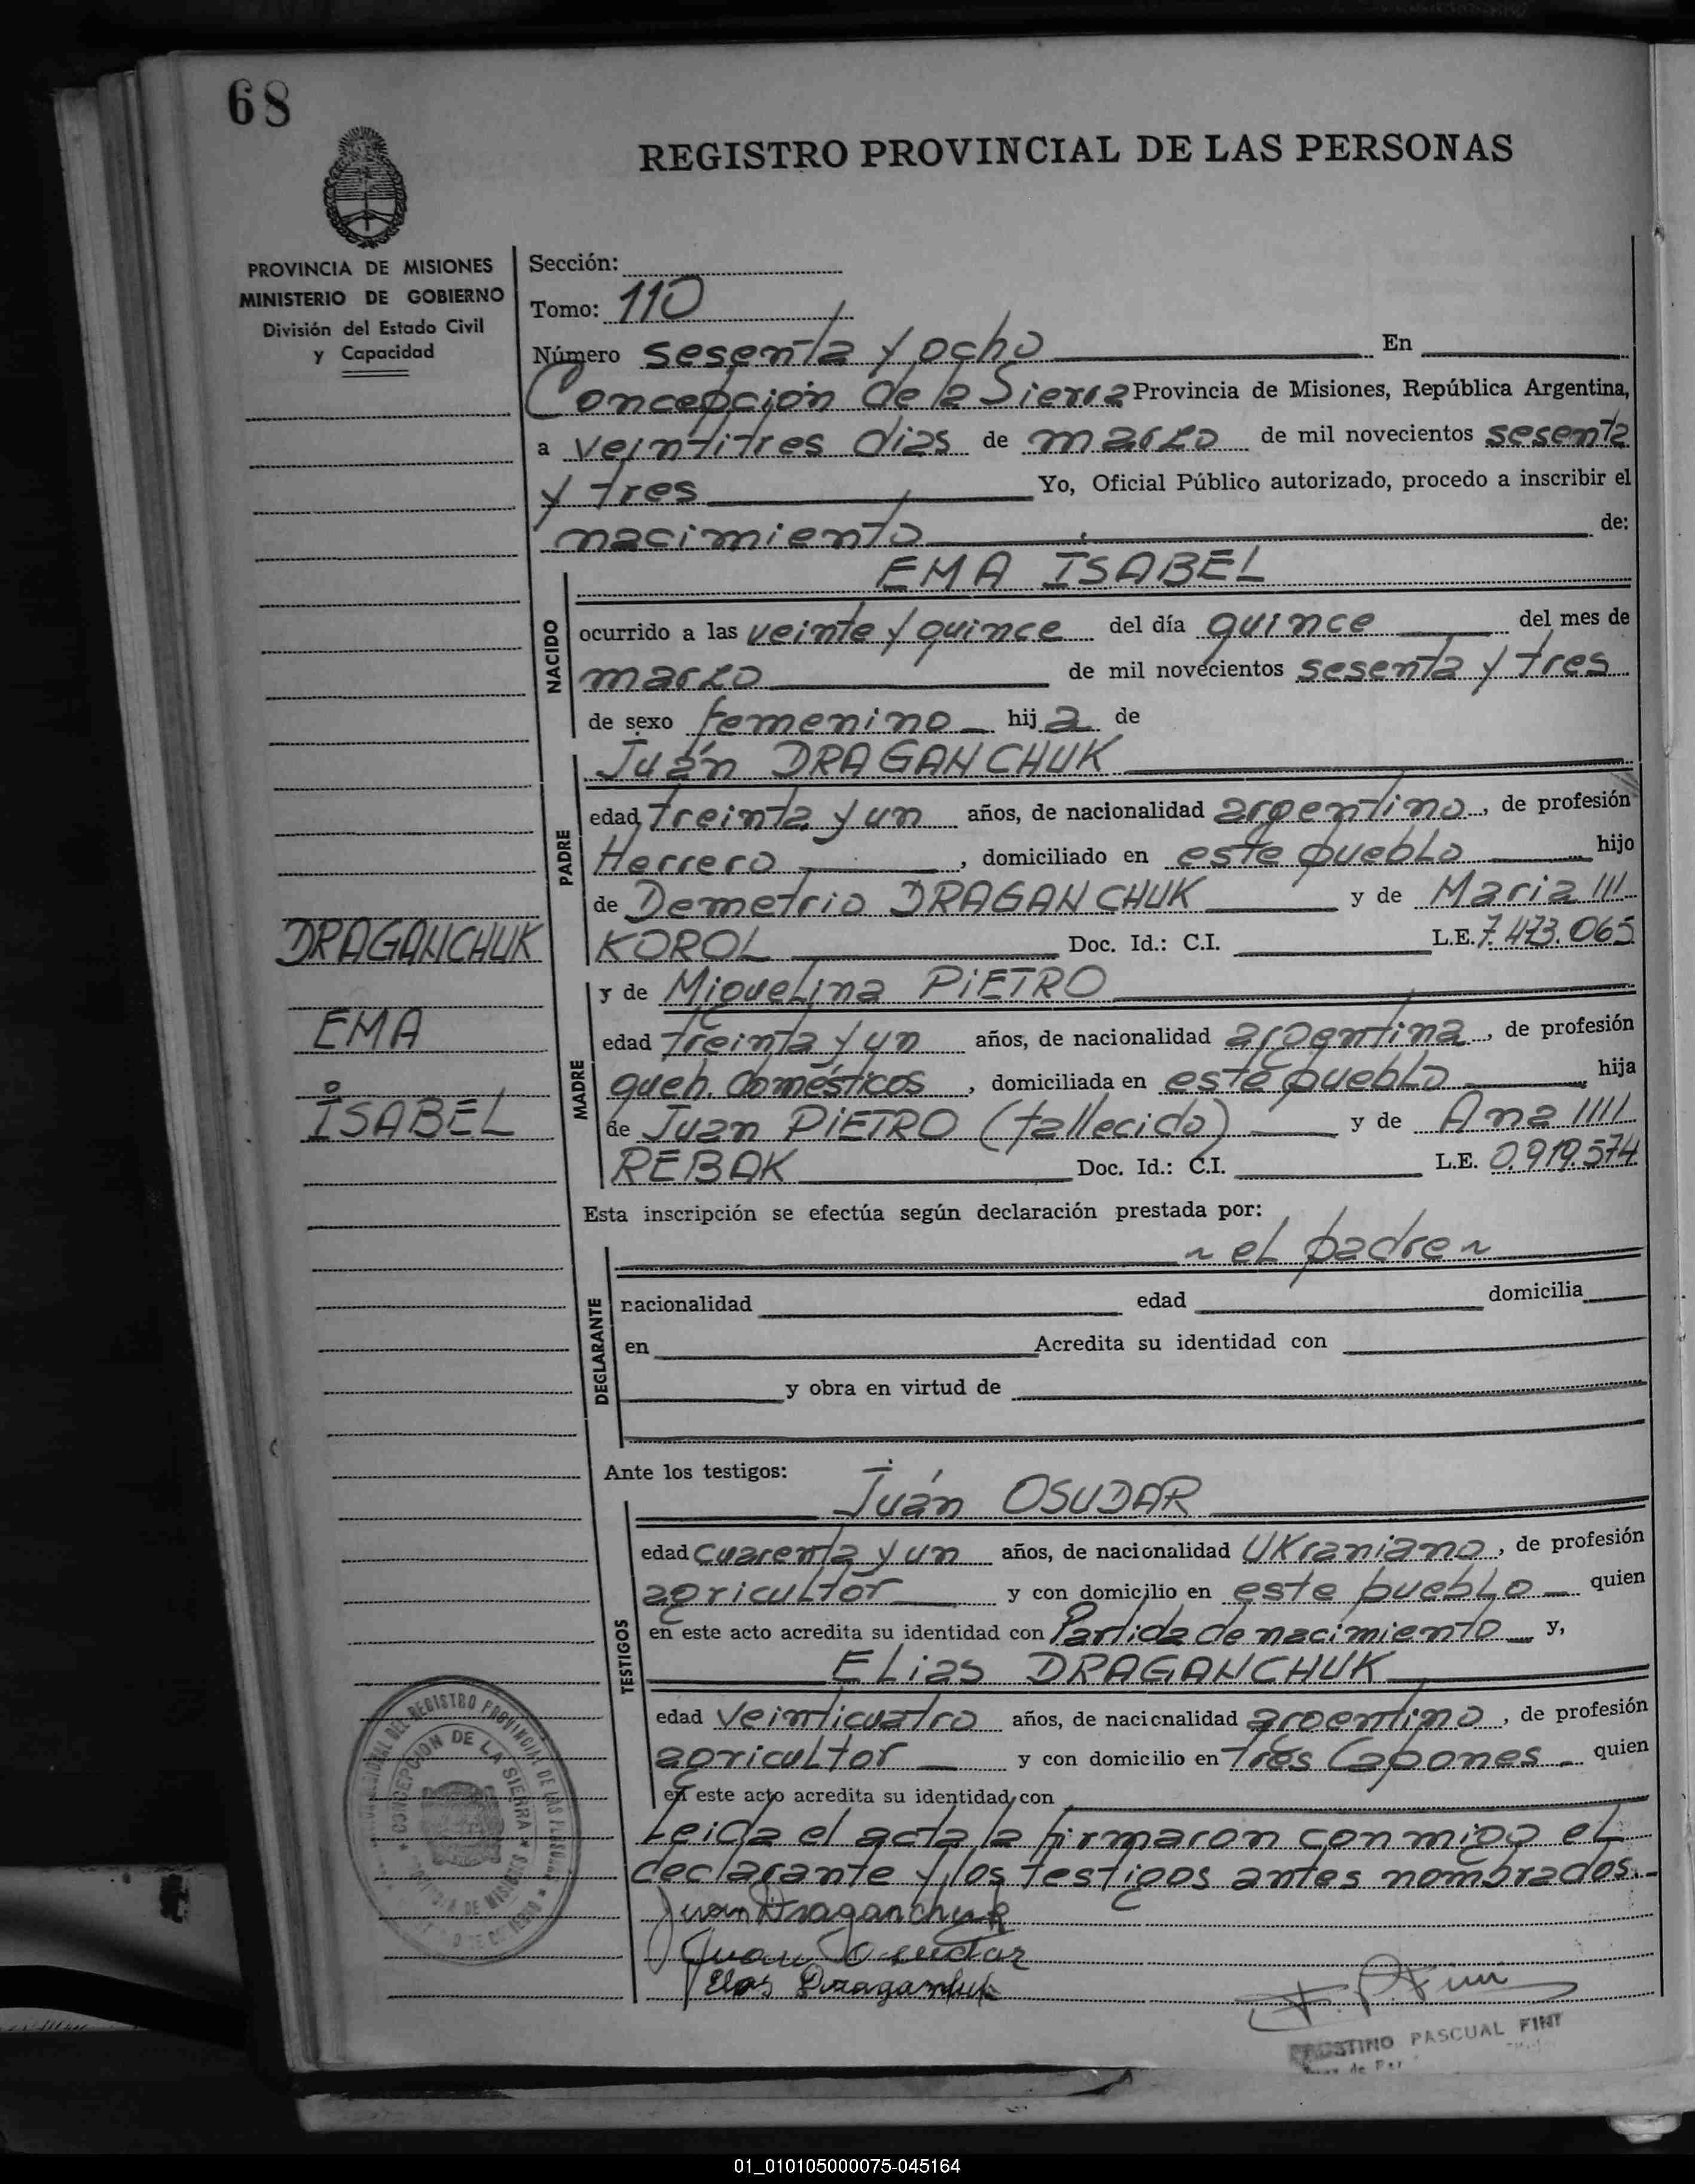 68
REGISTRO PROVINCIAL DE LAS PERSONAS
PROVINCIA DE MISIONES
MINISTERIO DE GOBIERNO
División del Estado Civil
y Capacidad
Sección:
Tomo: 110
Número sesenta y ocho En
Concepción de la Sierra Provincia de Misiones, República Argentina,
a veintitres dias de marzo de mil novecientos sesenta
y tres Yo, Oficial Público autorizado, procedo a inscribir el
nacimiento de:
EMA ISABEL
NACIDO
ocurrido a las veinte y quince del día quince del mes de
marzo de mil novecientos sesenta y tres
de sexo femenino hija de
Juán DRAGANCHUK
PADRE
edad treinta y un años, de nacionalidad argentino, de profesión
Herrero, domiciliado en este pueblo hijo
de Demetrio DRAGANCHUK y de Maria
KOROL Doc. Id.: C.I. L.E. 7.473.065
y de Miguelina PIETRO
MADRE
edad treinta y un años, de nacionalidad argentina, de profesión
queh. domésticos, domiciliada en este pueblo hija
de Juan PIETRO (fallecido) y de Ana
REBAK Doc. Id.: C.I. L.E. 0.919.574
DRAGANCHUK
EMA
ISABEL
Esta inscripción se efectúa según declaración prestada por:
~ el padre ~
DECLARANTE
nacionalidad edad domicilia
en Acredita su identidad con
y obra en virtud de
Ante los testigos:
Juán OSUDAR
TESTIGOS
edad cuarenta y un años, de nacionalidad Ukraniano, de profesión
agricultor y con domicilio en este pueblo quien
en este acto acredita su identidad con Partida de nacimiento y,
Elias DRAGANCHUK
edad veinticuatro años, de nacionalidad argentino, de profesión
agricultor y con domicilio en Tres Capones quien
en este acto acredita su identidad con
Leida el acta la firmaron conmigo el
declarante y los testigos antes nombrados.-
Juan Draganchuk
Juan Osudar
Elias Draganchuk
F. P. Fini
FAUSTINO PASCUAL FINI
DEL REGISTRO PROVINCIAL DE LAS
CONCEPCION DE LA SIERRA
DE MISIONES
01_010105000075-045164